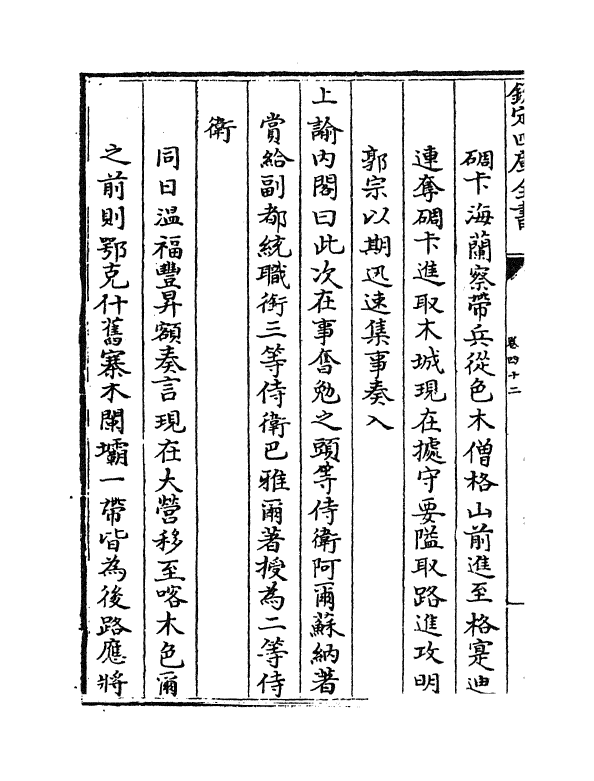 欽定四庫全書
卷四十二
碉卡海蘭察帶兵從色木僧格山前進至格寔迪
連奪碉卡進取木城現在據守要隘取路進攻明
郭宗以期迅速集事奏入
上諭內閣曰此次在事奮勉之頭等侍衛阿爾蘇納著
賞給副都統職銜三等侍衛巴雅爾著授為二等侍
衛
同日溫福豐昇額奏言現在大營移至喀木色爾
之前則鄂克什舊寨木闌壩一帶皆為後路應將